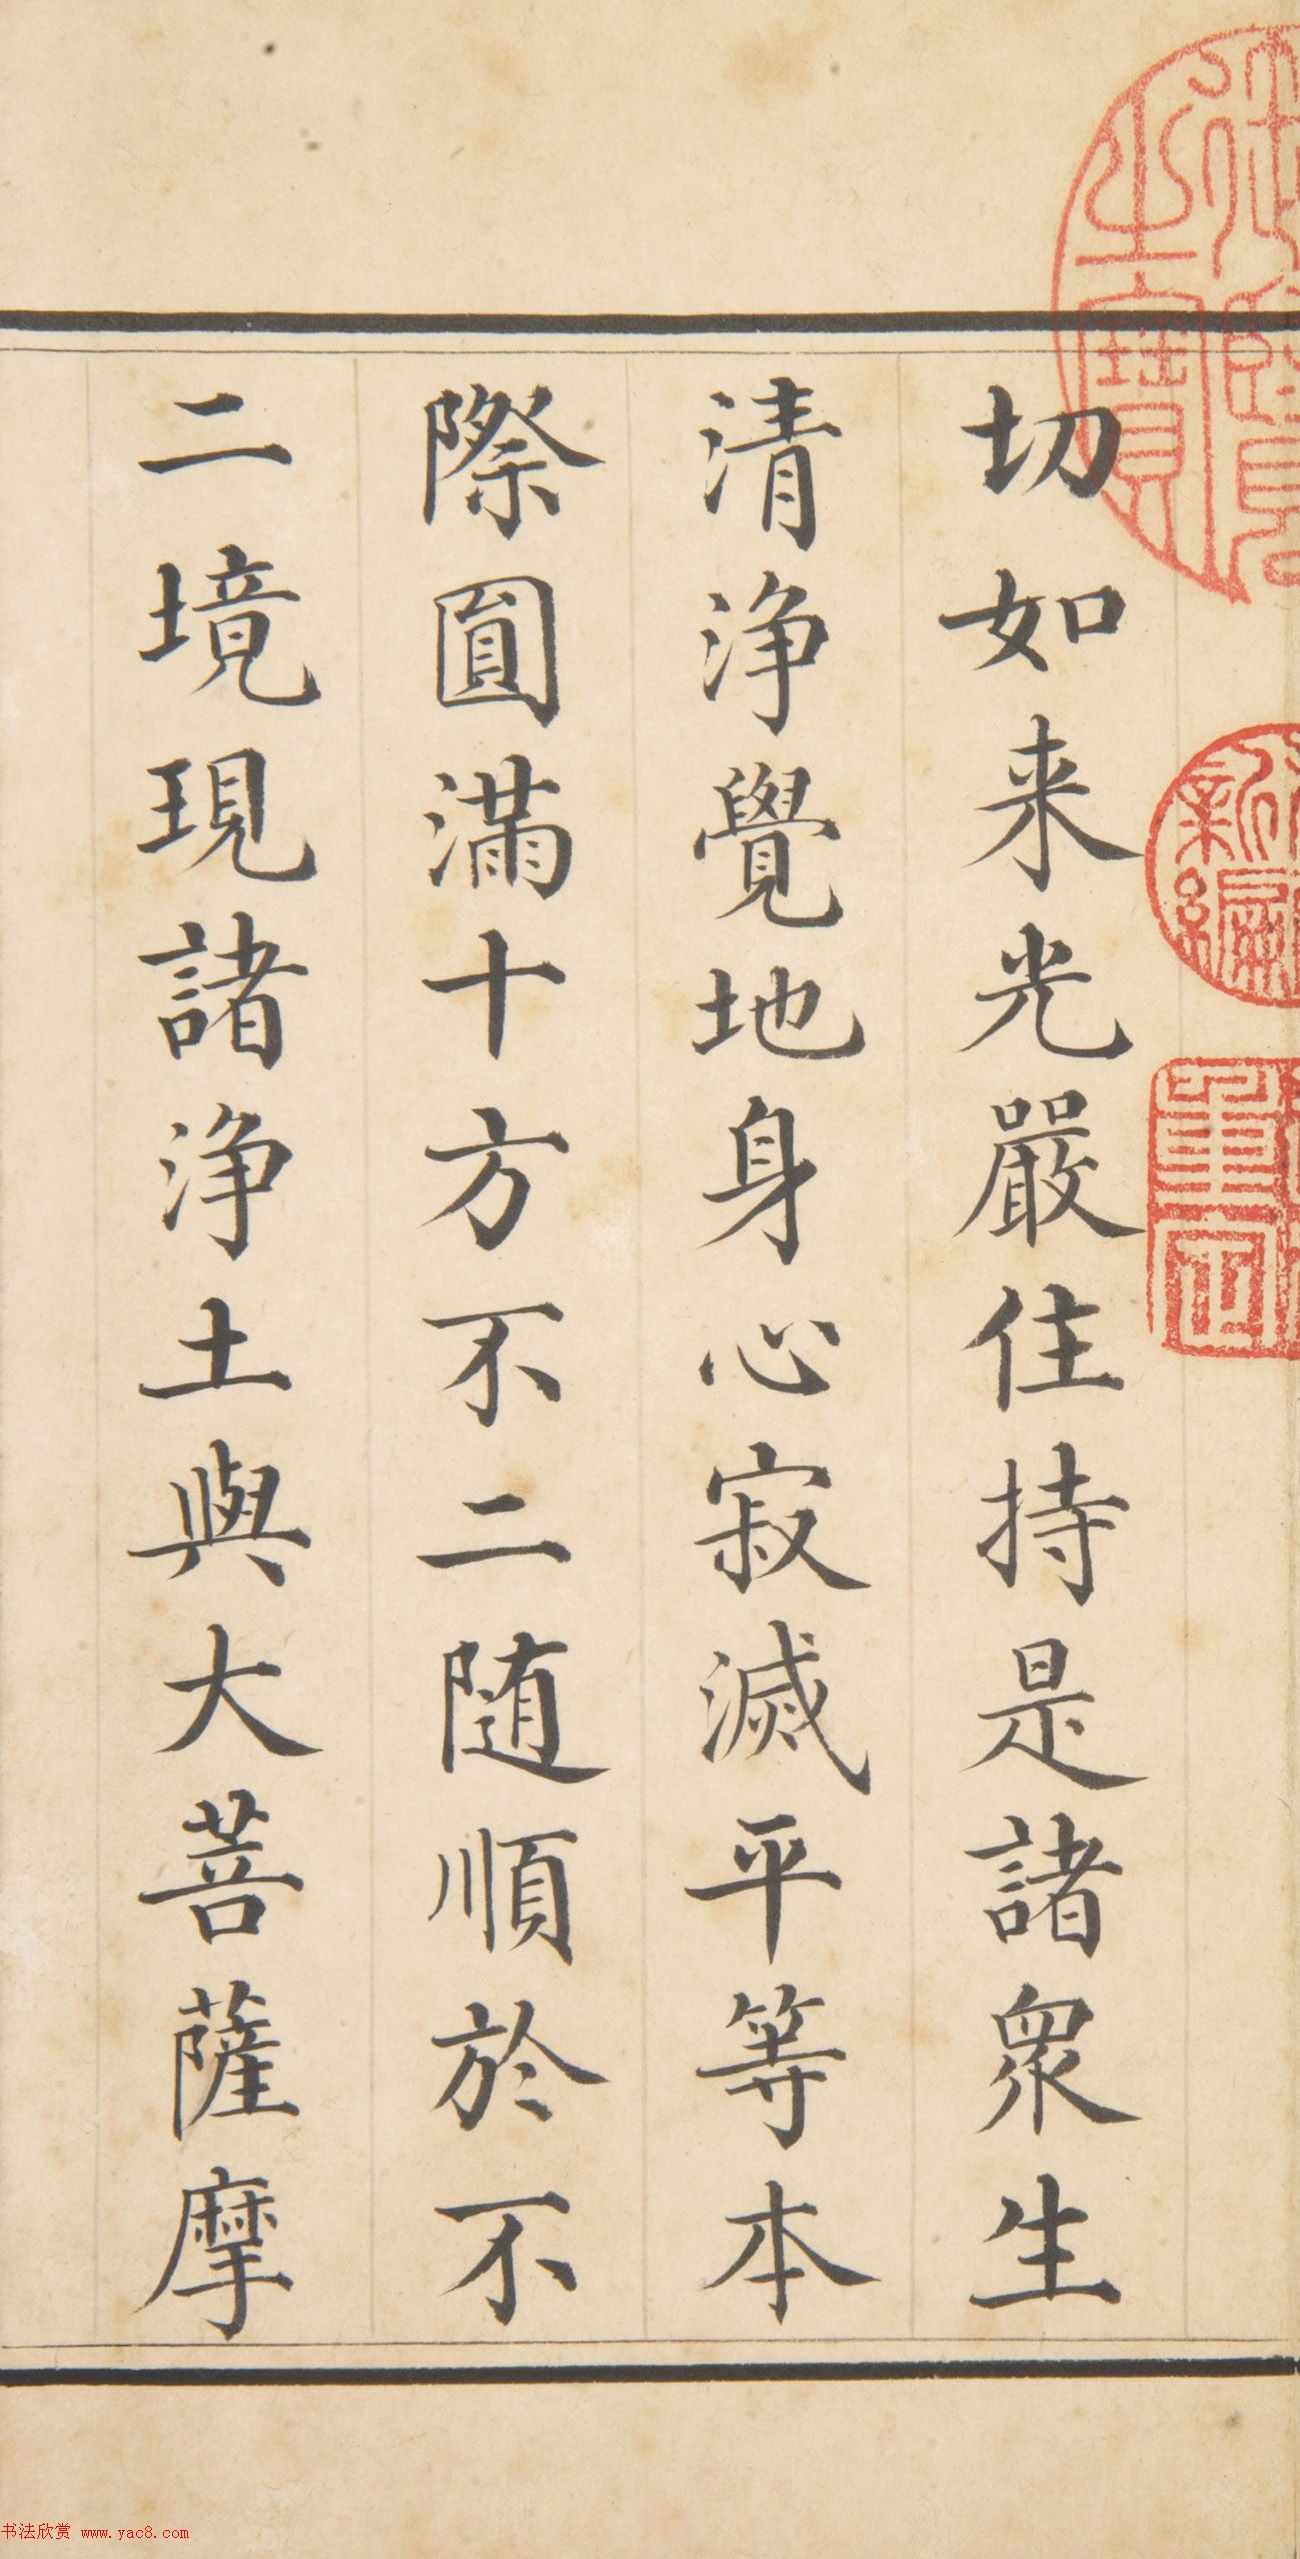 切如来光嚴住持是諸衆生
清浄覺地身心寂滅平等本
際圓滿十方不二随順於不
二境現諸浄土與大菩薩摩
之寳
新編
书法欣赏 www.yac8.com